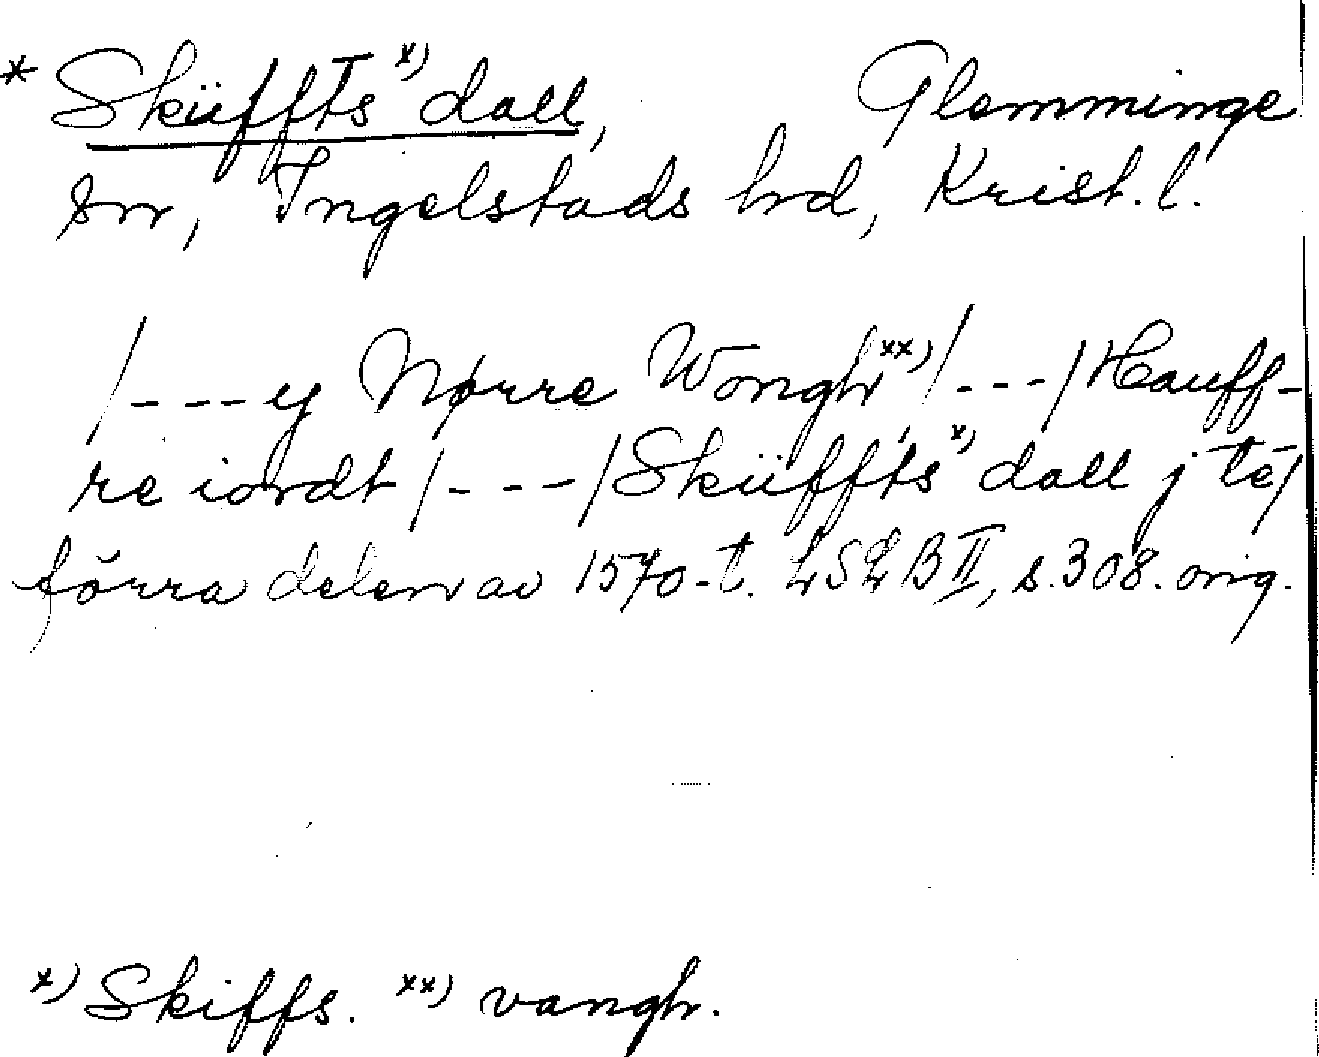 * Sküffts x) dall, Glemminge
sn, Ingelstads hd, Krist. l.
/---y Nørre Wongh xx) /---/ Hauff-
re iordt /---/ Sküffts x) dall j té/
förra delen av 1570-t. LSLB II, s. 308. orig.
x) Skiffs. xx) vangh.